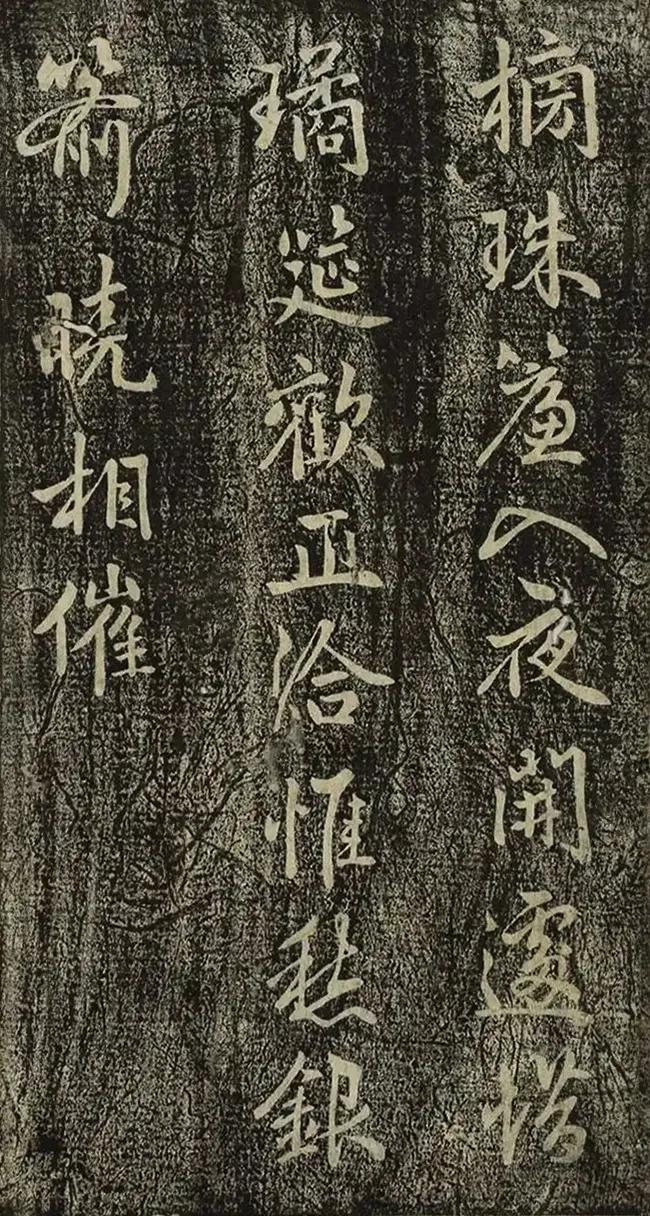 榜珠簾入夜開遽惜
璚筵歡正洽惟愁銀
箭曉相催